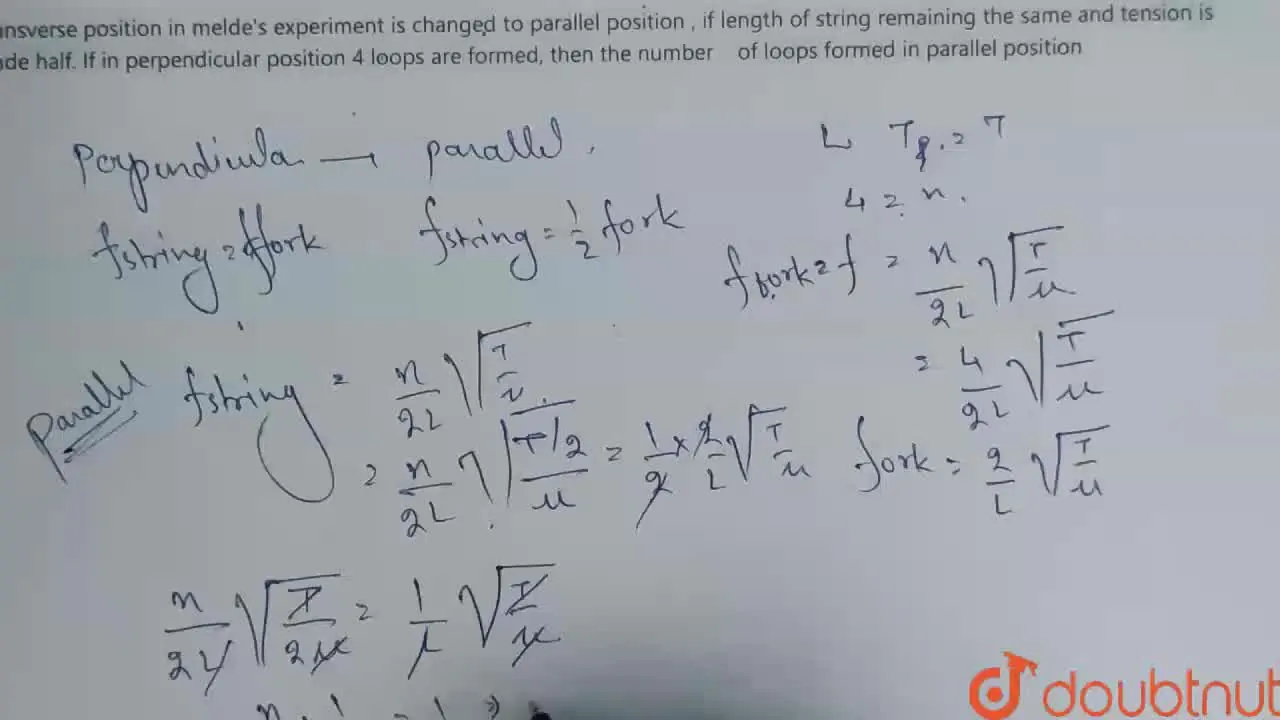 nsverse position in melde's experiment is changed to parallel position , if length of string remaining the same and tension is
de half. If in perpendicular position 4 loops are formed, then the number of loops formed in parallel position
Perpendicular → parallel.
L T⊥ = T
4 = n.
fstring = ffork fstring = 1/2 fork
ffork = f = n/2L √T/μ
= 4/2L √T/μ
fork = 2/L √T/μ
Parallel fstring = n/2L √T/μ
= n/2L √(T/2)/μ = 1/2 × 2/L √T/μ
n/2L √T/2μ = 1/L √T/μ
doubtnut